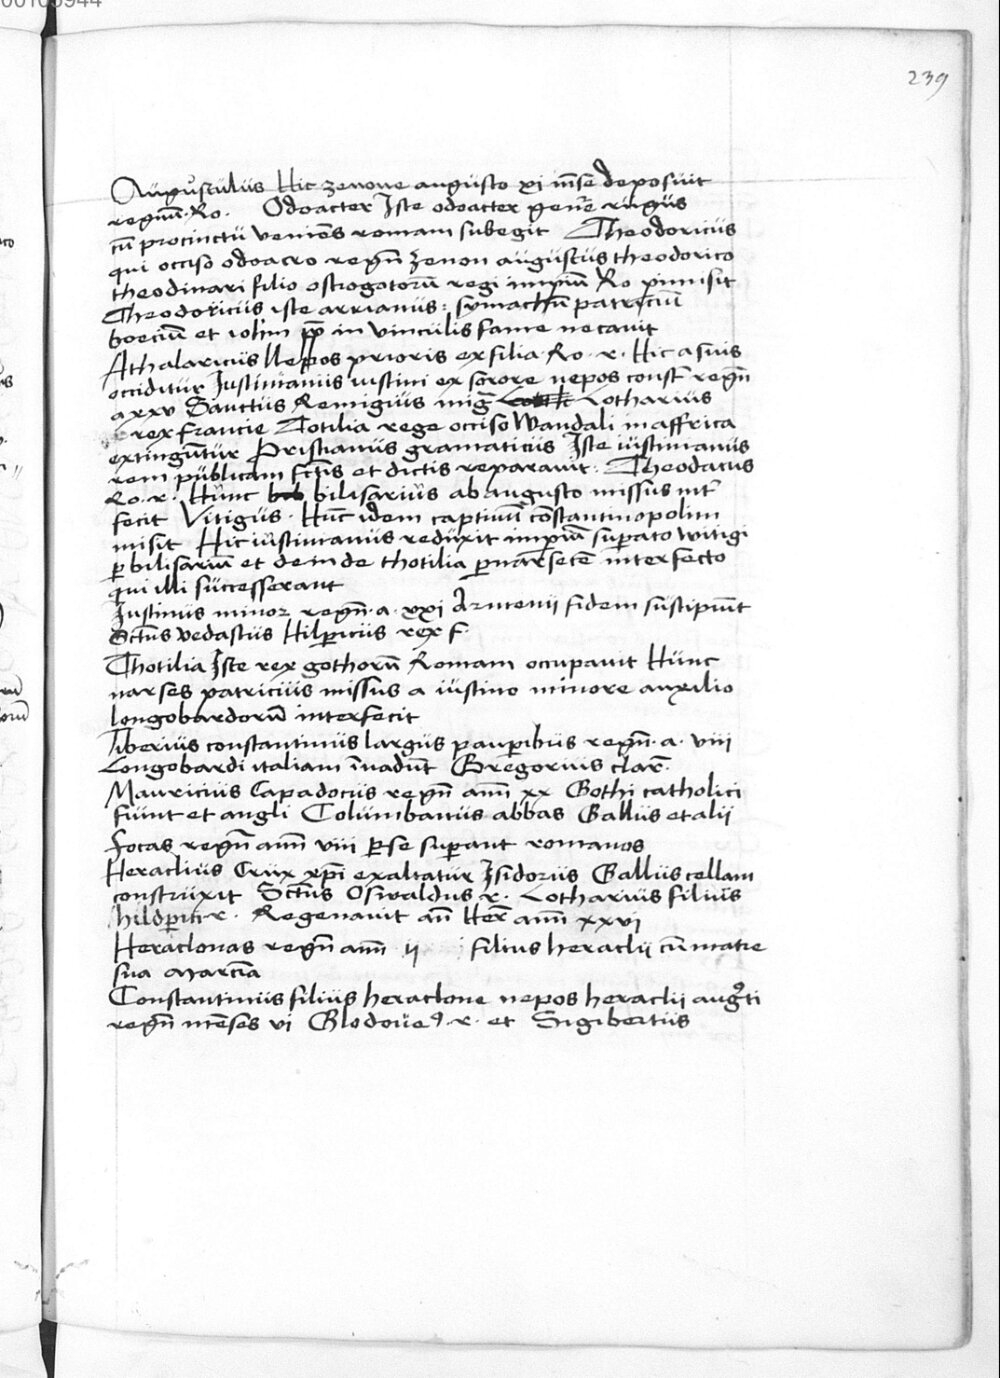 239
Augustulus Hic zenone augusto xi mēse deposuit
regnū Ro. Odoacter Iste odoacter genē rugus
cū procinctu veniens romam subegit Theodoricus
qui occiso odoacro regn̄ zenon augustus theodorico
theodinari filio ostrogotorū regi impiū Ro pmisit
Theodoricus iste arrianus : symachū patriciū
boeciū et iohm pp in vinculis fame necauit
Athalaricus nepos prioris ex filia Ro. r. Hic a suis
occiditur Iustinianus iustini ex sorore nepos const regn̄
a xxv Sanctus Remigius mig Lotharius
rex francie Totilia rege occiso Wandali in affrica
extingūtur Pristianus gramaticus Iste iustinianus
rem publicam fctīs et dictis reparauit : Theodatus
Ro. r. Hunc bilisarius ab augusto missus int
fecit Vitigus . Hūc idem captiuū cōstantinopolim
misit Hic iustinianus reduxit impiū supato witigi
p bilisariū et deinde thotilia p narsetē interfecto
qui illi successerant
Iustinus minor regn̄. a. xxi Armenii fidem suscipiūt
Sctūs vedastus Hilpicus rex f.
Thotilia Iste rex gothorū Romam occupauit Hunc
narses patricius missus a iustino minore auxilio
longobardorū interfecit
Tiberius constantinus largus paupibus regn̄. a. viii
Longobardi italiam īuadūt Gregorius clar̄.
Mauricius Capadocus regn̄ ann̄ xx Gothi catholici
fiunt et angli Columbanus abbas Gallus et alii
Focas regn̄ ann̄ viii pse supant romanos
Heraclius Crux xp̄i exaltatur Isidorus Gallus cellam
construxit Sctūs Oswaldus r. Lotharius filius
hildpici r. Regenauit an̄ Her̄ ann̄ xxvi
Heraclonas regn̄ ann̄ ii filius heraclii cū matre
sua marcīa
Constantinus filius heraclone nepos heraclii augti
regn̄ mēses vi Glodoue9 . r. et Sigibertus